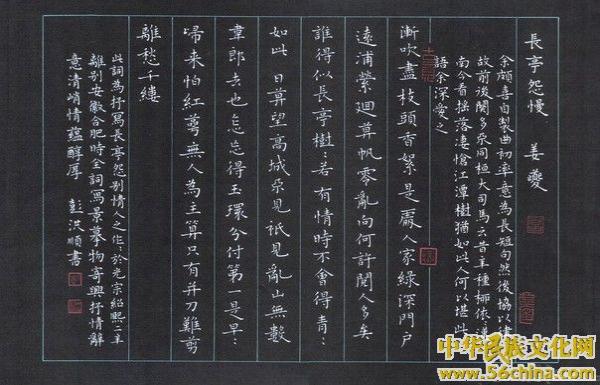 長亭怨慢 姜夔
余頗喜自製曲初率意為長短句然後協以律
故前後闋多不同桓大司馬云昔年種柳依依漢
南今看搖落悽愴江潭樹猶如此人何以堪此
語余深愛之
漸吹盡枝頭香絮是處人家綠深門戶
遠浦縈迴暮帆零亂向何許閱人多矣
誰得似長亭樹:若有情時不會得青:
如此日暮望高城不見祇見亂山無數
韋郎去也怎忘得玉環分付第一是早:
歸來怕紅萼無人為主算只有并刀難剪
離愁千縷
此詞為抒寫長亭怨別情人之作:於光宗紹熙二年
離別安徽合肥時全詞寫景摹物寄興抒情辭
意清峭情蘊醇厚 彭 順書
中华民族文化网
www.56china.com